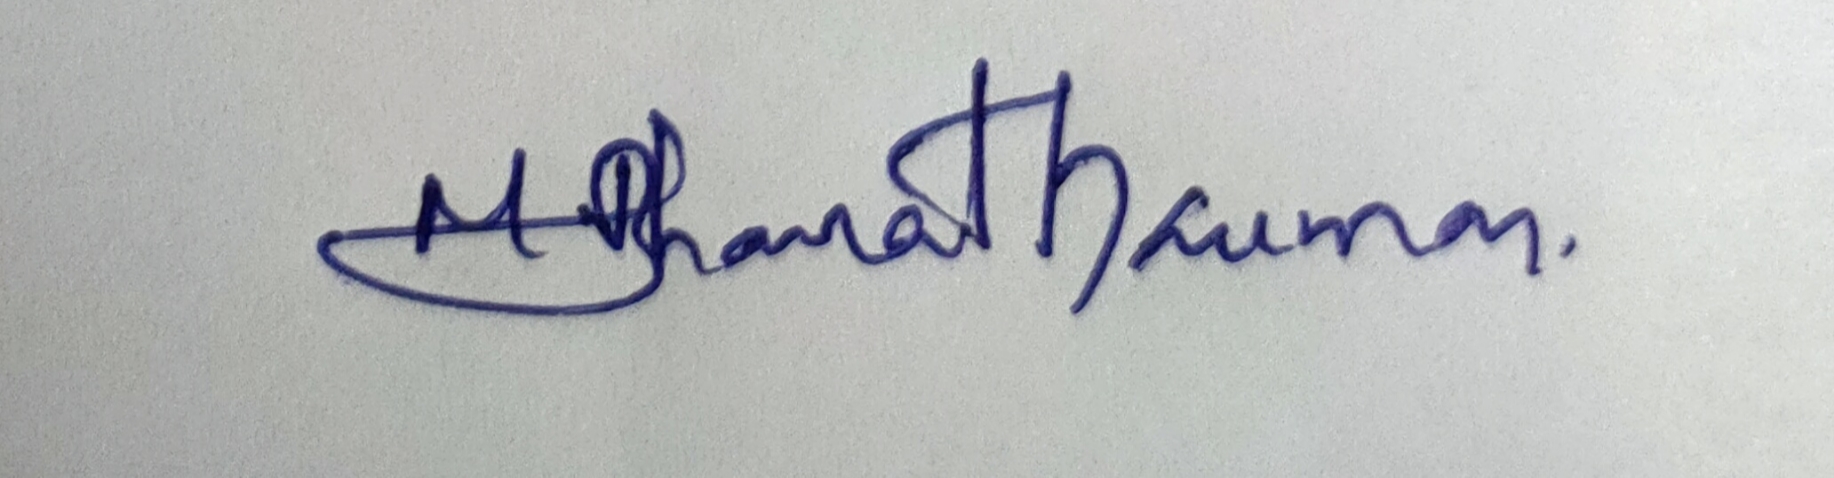 M Bharathkumar.